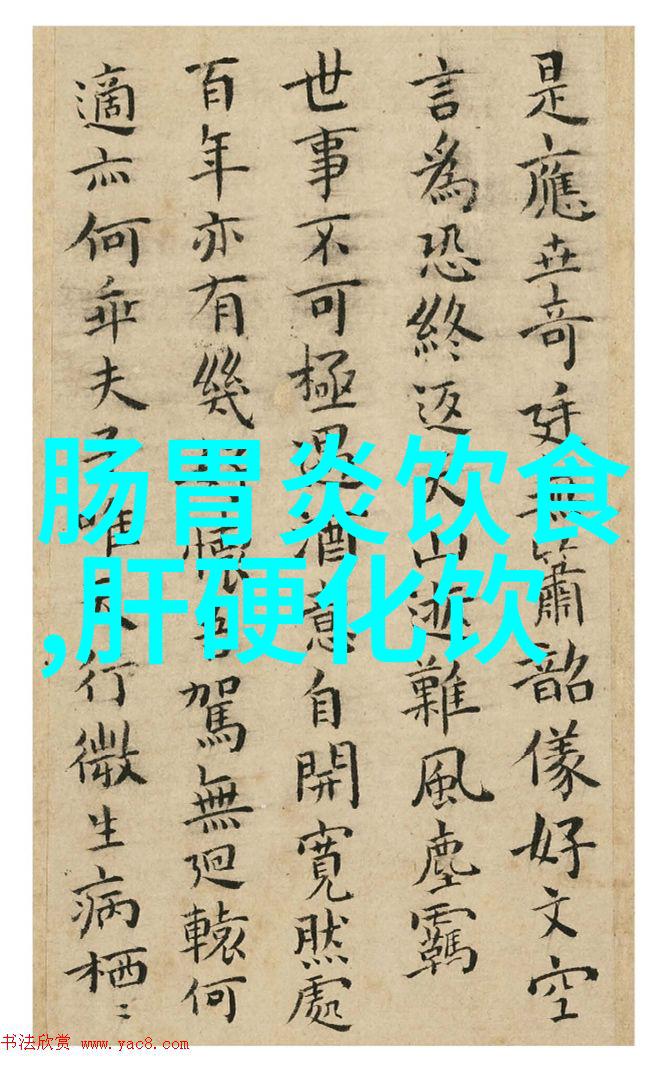 是應世奇廷無簫韶儀好文空
言爲恐終返山逝難風塵羈
世事不可極遇酒意自開寬然處
百年亦有幾悵車駕無迴轅何
適亦何乖夫子唯行微生病栖〻
肠胃炎饮食
,肝硬化饮
书法欣赏 www.yac8.com